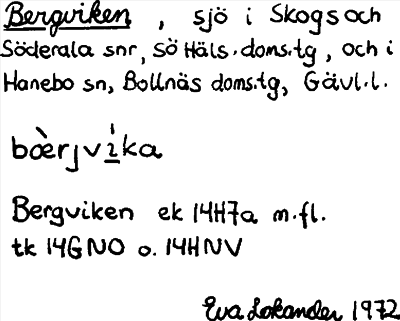 Bergviken, sjö i Skogs och
Söderala snr, SÖ Häls. doms.tg, och i
Hanebo sn, Bollnäs doms.tg, Gävl.l.
bœ̀rjví̲ka
Bergviken ek 14H7a m.fl.
tk 14GNO o. 14HNV
Eva Lokander 1972